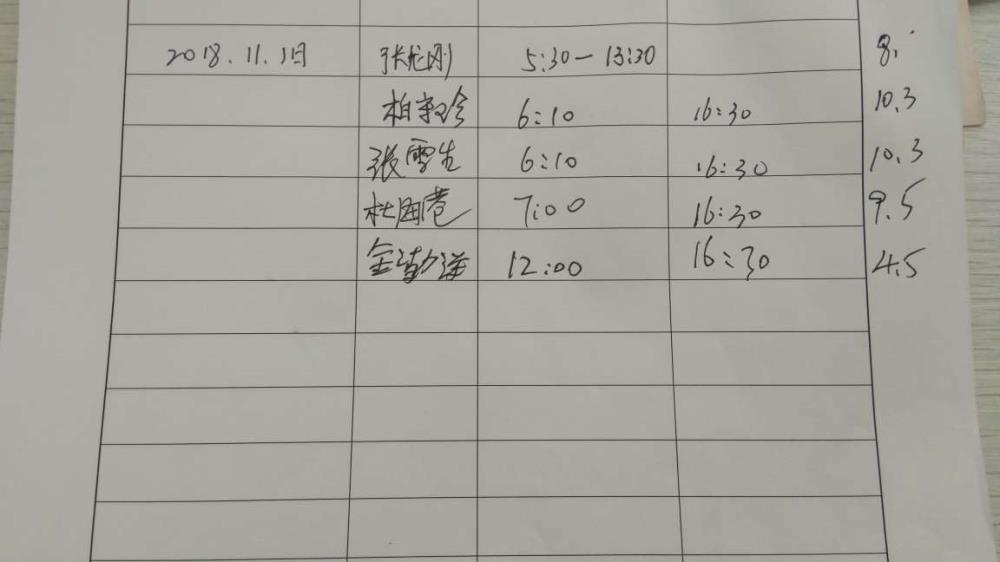 2018.11.1日 张龙刚 5:30-13:30 8.
柏 珍 6:10 16:30 10.3
張雪生 6:10 16:30 10.3
杜海巷 7:00 16:30 9.5
金 12:00 16:30 4.5